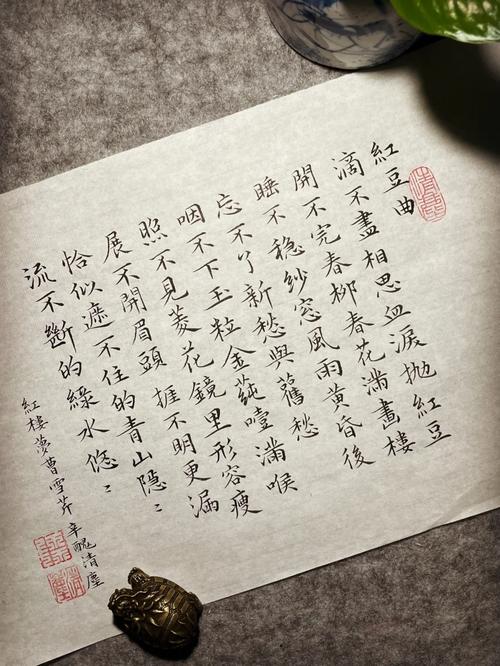 紅豆曲
滴不盡相思血淚抛紅豆
開不完春柳春花滿畫樓
睡不穩紗窓風雨黄昏後
忘不了新愁與舊愁
咽不下玉粒金蒓噎滿喉
照不見菱花鏡里形容瘦
展不開眉頭捱不明更漏
恰似遮不住的青山隱〻
流不斷的綠水悠〻
紅樓夢曹雪芹
辛醜清塵